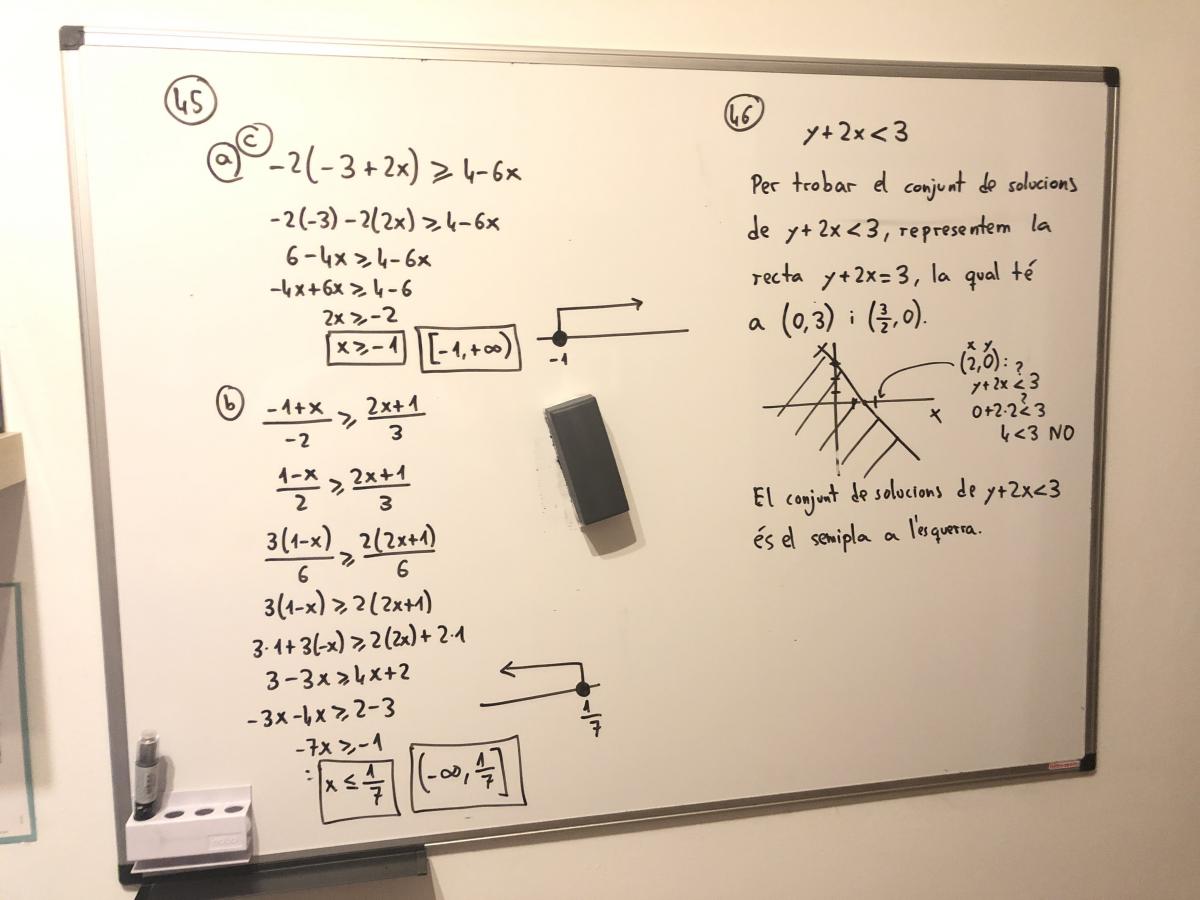 45
a c -2(-3+2x) ⩾ 4-6x
-2(-3)-2(2x) ⩾ 4-6x
6-4x ⩾ 4-6x
-4x+6x ⩾ 4-6
2x ⩾ -2
x ⩾ -1 [-1,+∞)
-1
b -1+x/-2 ⩾ 2x+1/3
1-x/2 ⩾ 2x+1/3
3(1-x)/6 ⩾ 2(2x+1)/6
3(1-x) ⩾ 2(2x+1)
3·1+3(-x) ⩾ 2(2x)+2·1
3-3x ⩾ 4x+2
-3x-4x ⩾ 2-3
-7x ⩾ -1
: x ≤ 1/7 (-∞, 1/7]
1/7
46
y+2x<3
Per trobar el conjunt de solucions
de y+2x<3, representem la
recta y+2x=3, la qual té
a (0,3) i (3/2,0).
x y
(2,0): ?
y+2x<3
?
0+2·2<3
4<3 NO
x
El conjunt de solucions de y+2x<3
és el semipla a l'esquerra.